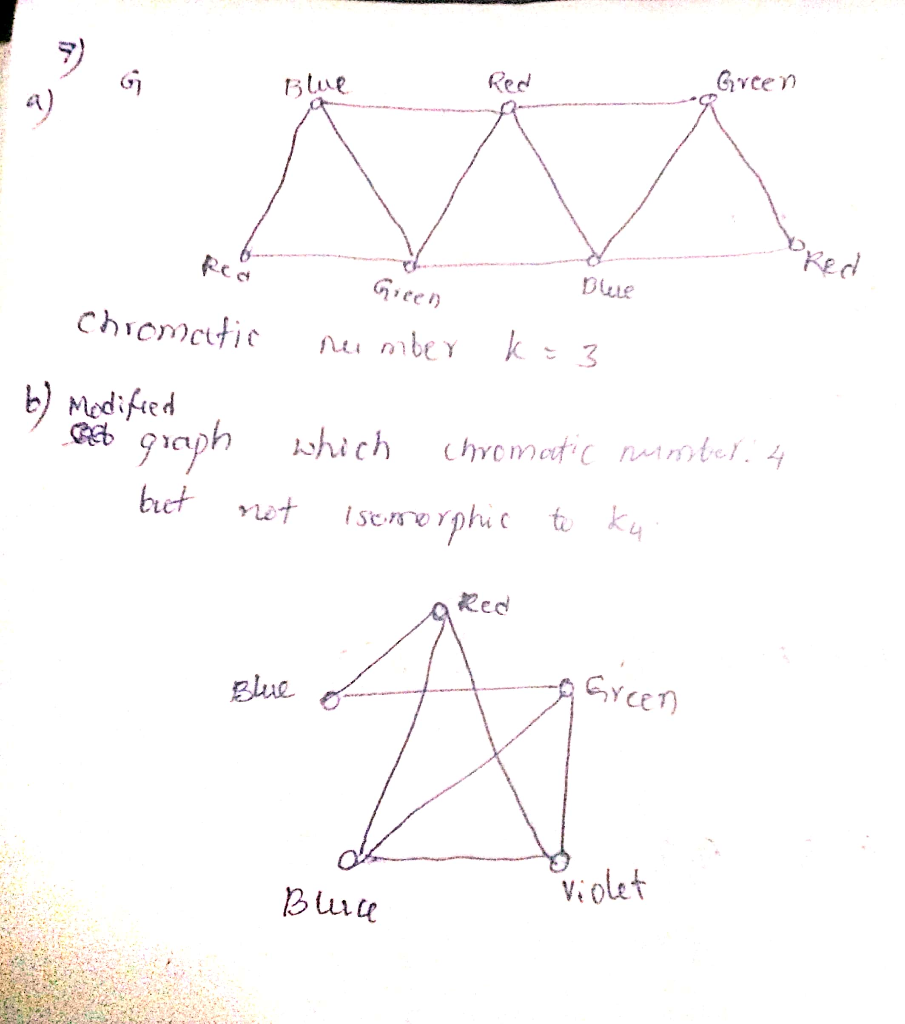 7)
a) G
Blue Red Green
Red Green Blue Red
Chromatic number k = 3
b) Modified
graph which chromatic number. 4
but not isomorphic to K4
Red
Blue Green
Blue Violet